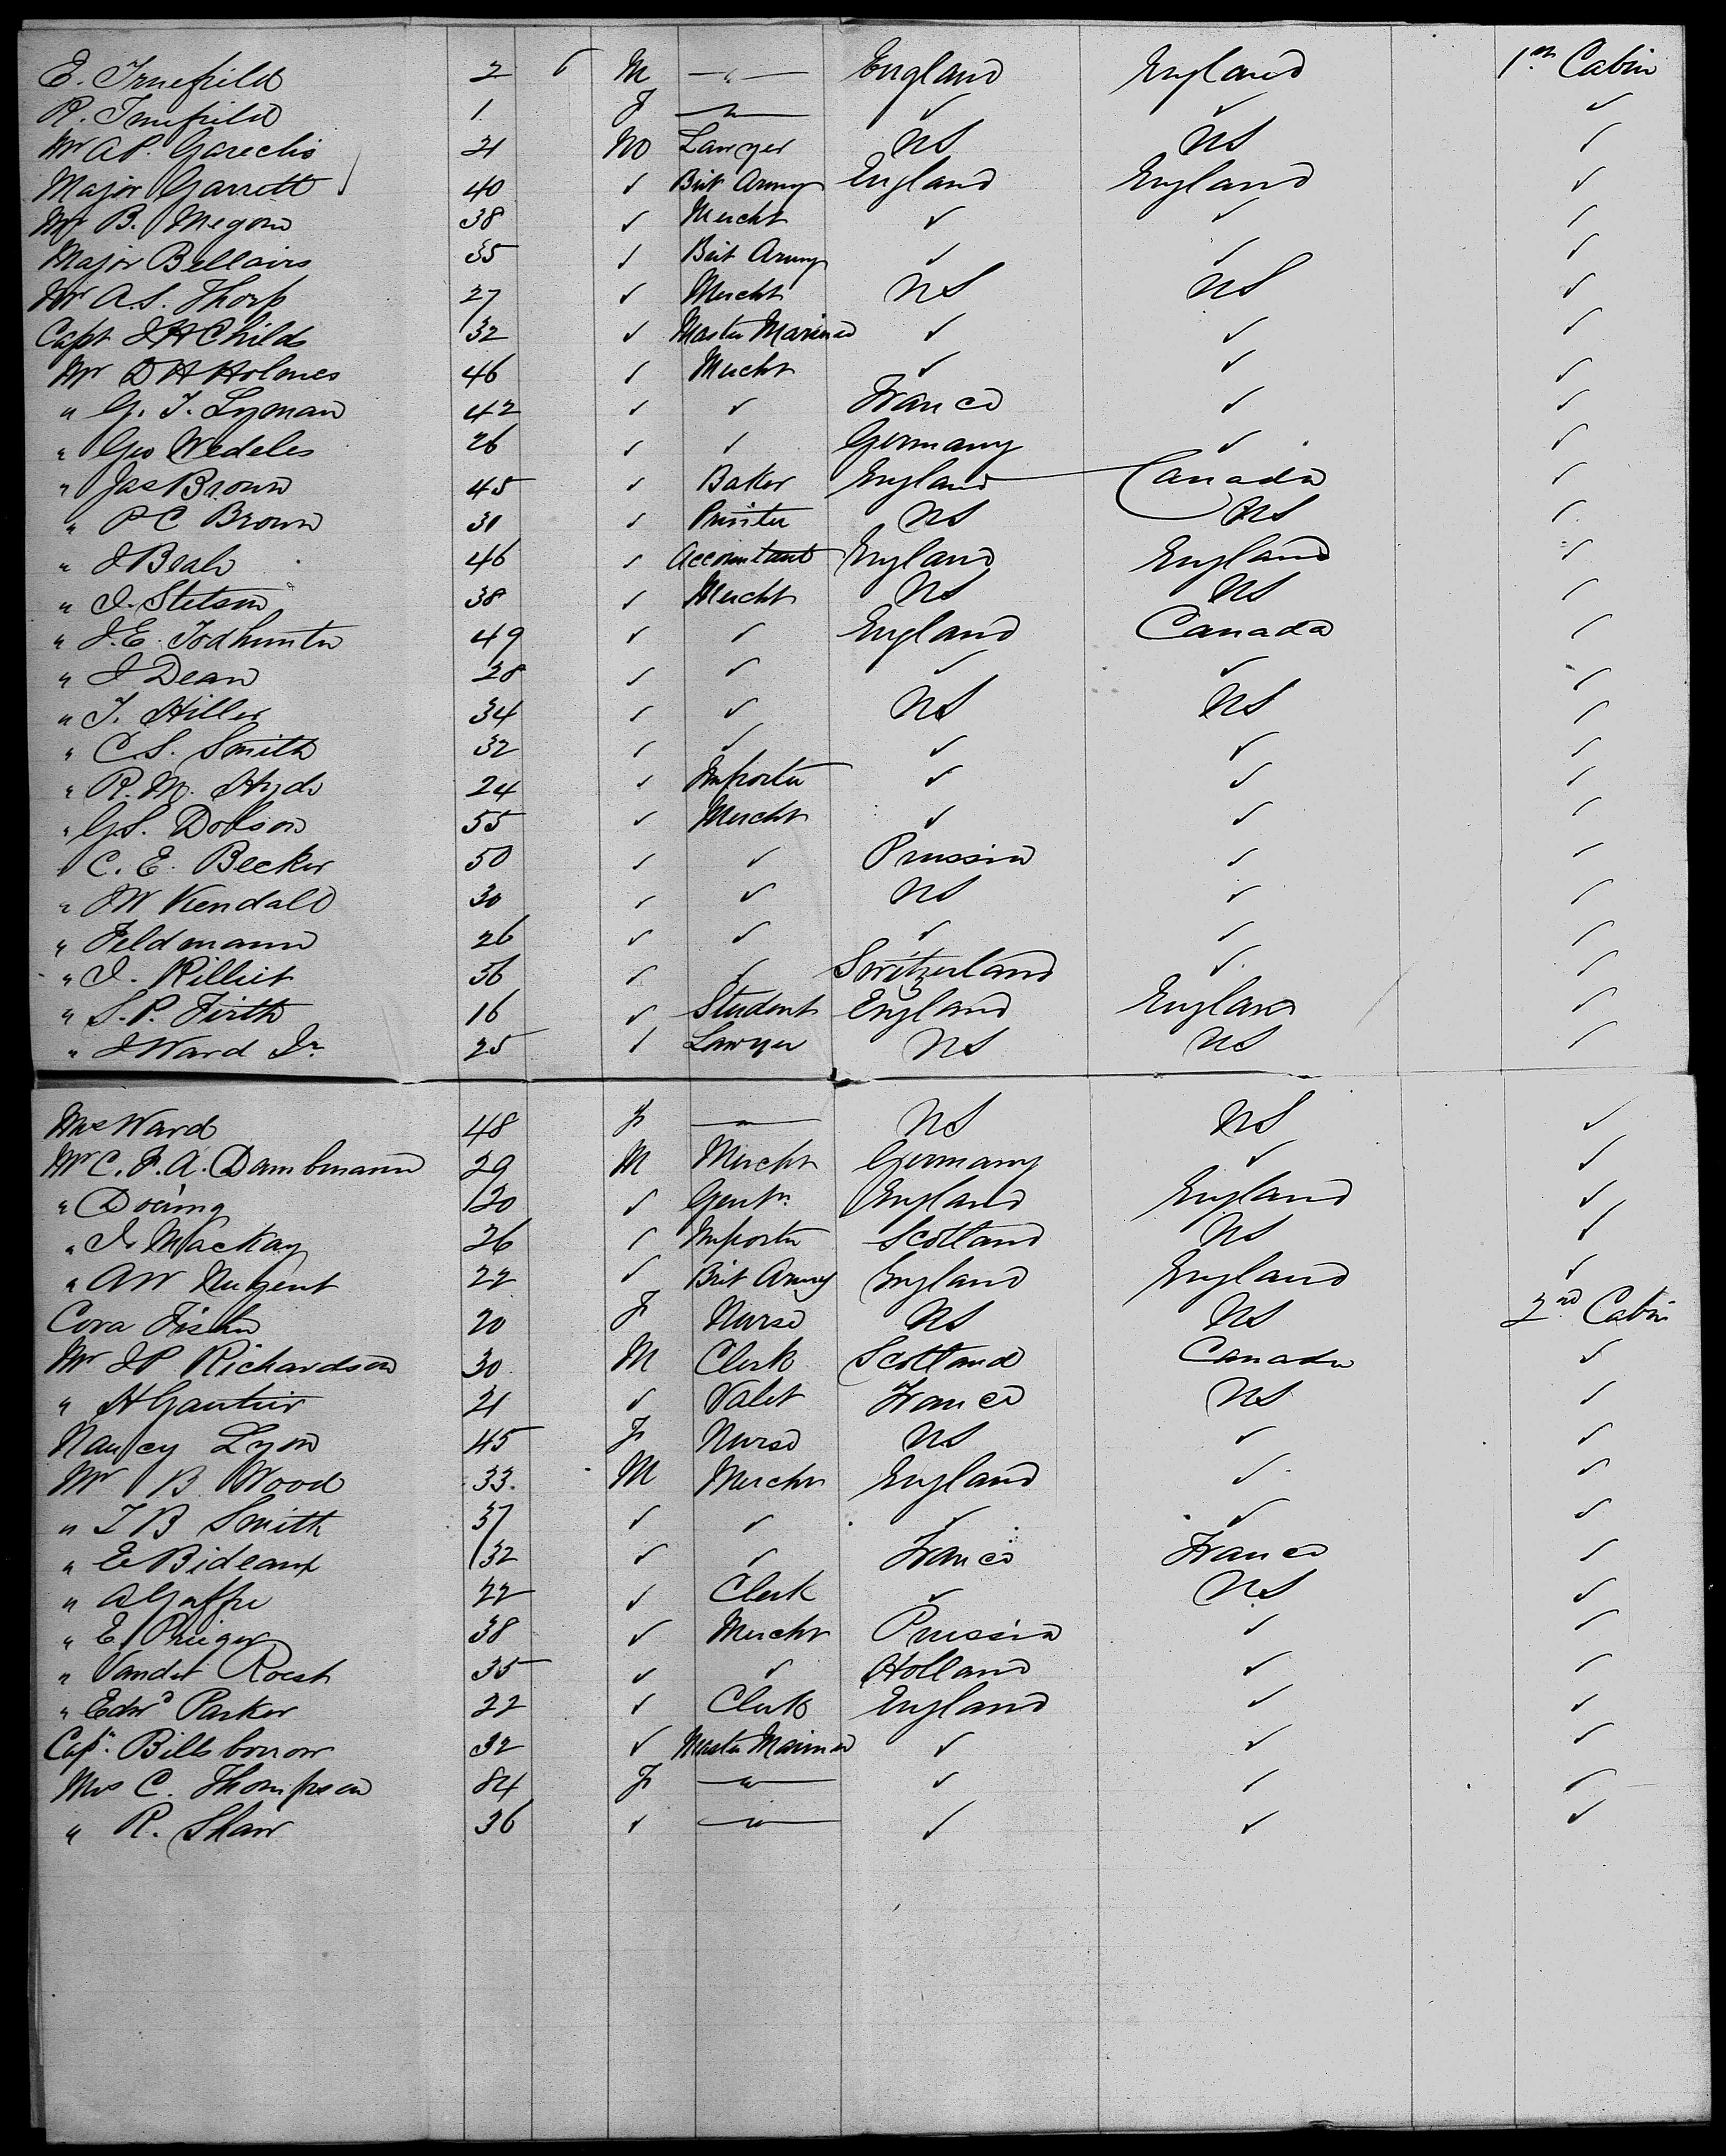 E. Truefield 2 6 M —"— England England 1st Cabin
R. Truefield 1 F —"— ✓ ✓ ✓
Mr A P. Gareclis 21 M Lawyer US US ✓
Major Garrett 40 ✓ Brit Army England England ✓
Mr B. Megow 38 ✓ Mercht ✓ ✓ ✓
Major Bellairs 35 ✓ Brit Army ✓ ✓ ✓
Mr A.S. Thorp 27 ✓ Mercht US US ✓
Capt J H Childs 32 ✓ Master Mariner ✓ ✓ ✓
Mr D H Holmes 46 ✓ Mercht ✓ ✓ ✓
" G. T. Lyman 42 ✓ ✓ France ✓ ✓
" Geo Wedeles 26 ✓ ✓ Germany ✓ ✓
" Jas Brown 45 ✓ Baker England Canada ✓
" P C Brown 31 ✓ Printer US US ✓
" J Beal 46 ✓ Accountant England England ✓
" J. Stetson 38 ✓ Mercht US US ✓
" J. E. Todhunter 49 ✓ ✓ England Canada ✓
" J Dean 28 ✓ ✓ ✓ ✓ ✓
" T. Hiller 34 ✓ ✓ US US ✓
" C. S. Smith 32 ✓ ✓ ✓ ✓ ✓
" R. M. Hyde 24 ✓ Importer ✓ ✓ ✓
" G S. Dobson 55 ✓ Mercht ✓ ✓ ✓
" C. E. Becker 50 ✓ ✓ Prussia ✓ ✓
" J W Kendall 30 ✓ ✓ US ✓ ✓
" Feldmann 26 ✓ ✓ ✓ ✓ ✓
" J. Rilliet 36 ✓ ✓ Switzerland ✓ ✓
" S. P. Firth 16 ✓ Student England England ✓
" J Ward Jr 25 ✓ Lawyer US US ✓
Mrs Ward 48 F — US US ✓
Mr C. F. A. Dambmann 29 M Mercht Germany ✓ ✓
" Doering 20 ✓ Gentn England England ✓
" J. Mackay 26 ✓ Importer Scotland US ✓
" A W Nugent 22 ✓ Brit Army England England ✓
Cora Fisher 20 F Nurse US US 2nd Cabin
Mr J P. Richardson 30 M Clerk Scotland Canada ✓
" H Gautier 21 ✓ Valet France US ✓
Nancy Lyon 45 F Nurse US ✓ ✓
Mr B Wood 33. M Mercht England ✓ ✓
" T B Smith 37 ✓ ✓ ✓ ✓ ✓
" E Bideaux 32 ✓ ✓ France France ✓
" A 22 ✓ Clerk ✓ US ✓
" E. Prieger 38 ✓ Mercht Prussia ✓ ✓
" Vandet Roest 35 ✓ ✓ Holland ✓ ✓
" Edwd Parker 22 ✓ Clerk England ✓ ✓
Capn. Billsborrow 32 ✓ Master Mariner ✓ ✓ ✓
Mrs C. Thompson 84 F —"— ✓ ✓ ✓
" R. Shaw 36 ✓ —"— ✓ ✓ ✓